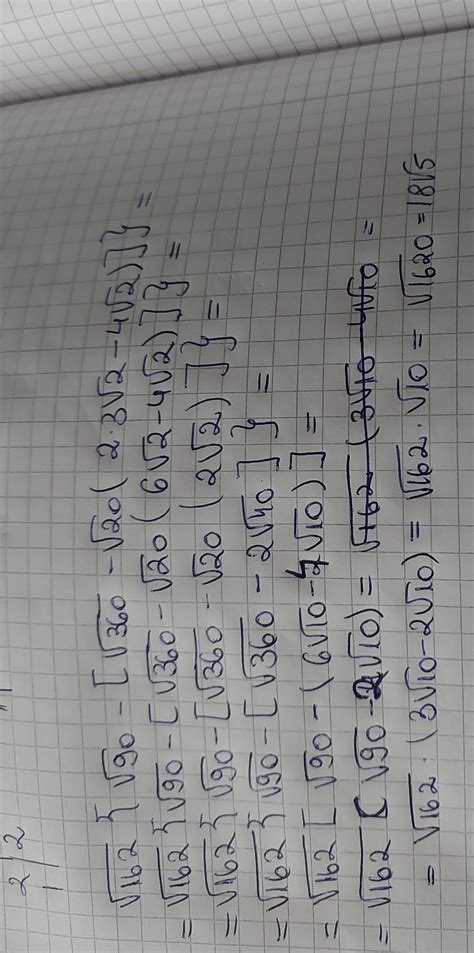 2/2
√162 { √90 - [√360 - √20 ( 2·3√2 - 4√2)]} =
= √162 { √90 - [√360 - √20 (6√2 - 4√2)]} =
= √162 { √90 - [√360 - √20 (2√2) ]} =
= √162 { √90 - [√360 - 2√40 ]} =
= √162 [ √90 - (6√10 - 4√10)] =
= √162 [ √90 - 2√10) = √162 (3√10 - 4√10 =
= √162 · (3√10 - 2√10) = √162 · √10 = √1620 = 18√5